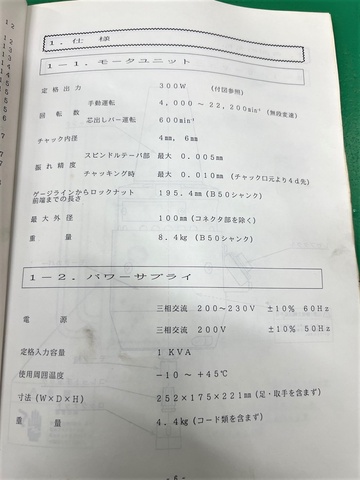 1．仕 様
1－1．モータユニット
定格出力 300W (付図参照)
手動運転 4,000 ～ 22,200min⁻¹ (無段変速)
回 転 数
芯出しバー運転 600min⁻¹
チャック内径 4mm，6mm
スピンドルテーパ部 最大 0.005mm
振れ精度
チャッキング時 最大 0.010mm (チャック口元より4d先)
ゲージラインからロックナット
前端までの長さ 195.4mm (B50シャンク)
最大外径 100mm (コネクタ部を除く)
重 量 8.4kg (B50シャンク)
1－2．パワーサプライ
三相交流 200～230V ±10% 60Hz
電 源
三相交流 200V ±10% 50Hz
定格入力容量 1 KVA
使用周囲温度 －10 ～ +45℃
寸法 (W×D×H) 252×175×221mm (足・取手を含まず)
重 量 4.4kg (コード類を含まず)
- 6 -